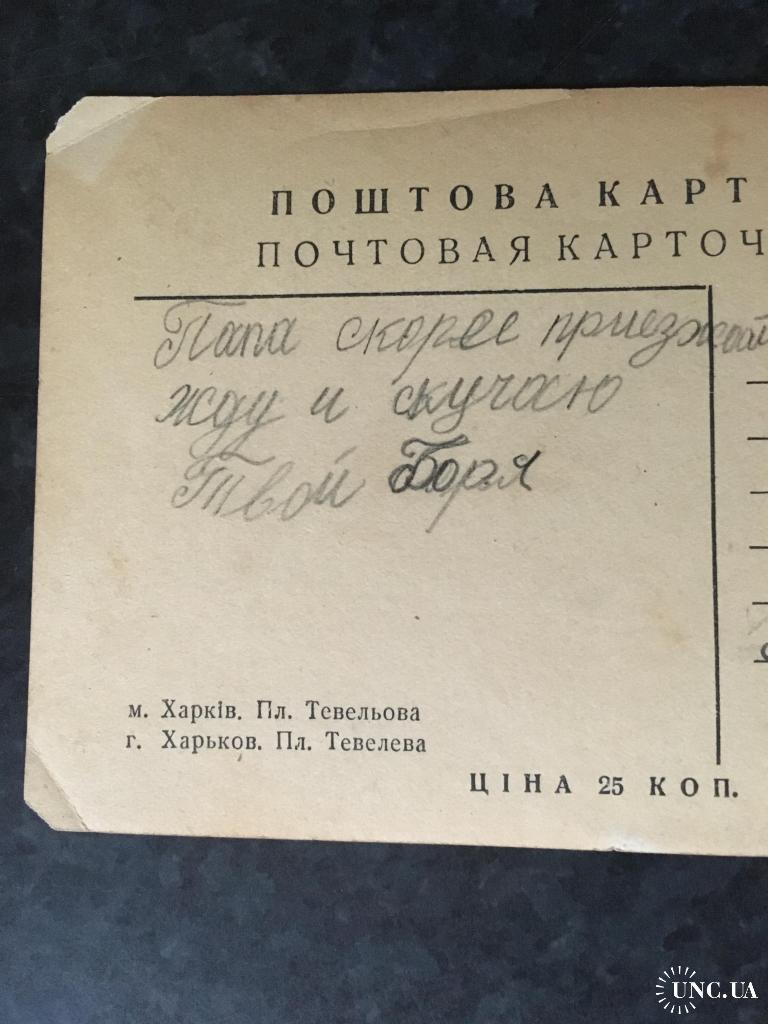 ПОШТОВА КАРТ
ПОЧТОВАЯ КАРТОЧ
Папа скорее приезжай
жду и скучаю
Твой Боря
м. Харків. Пл. Тевельова
г. Харьков. Пл. Тевелева
ЦІНА 25 КОП.
UNC.UA